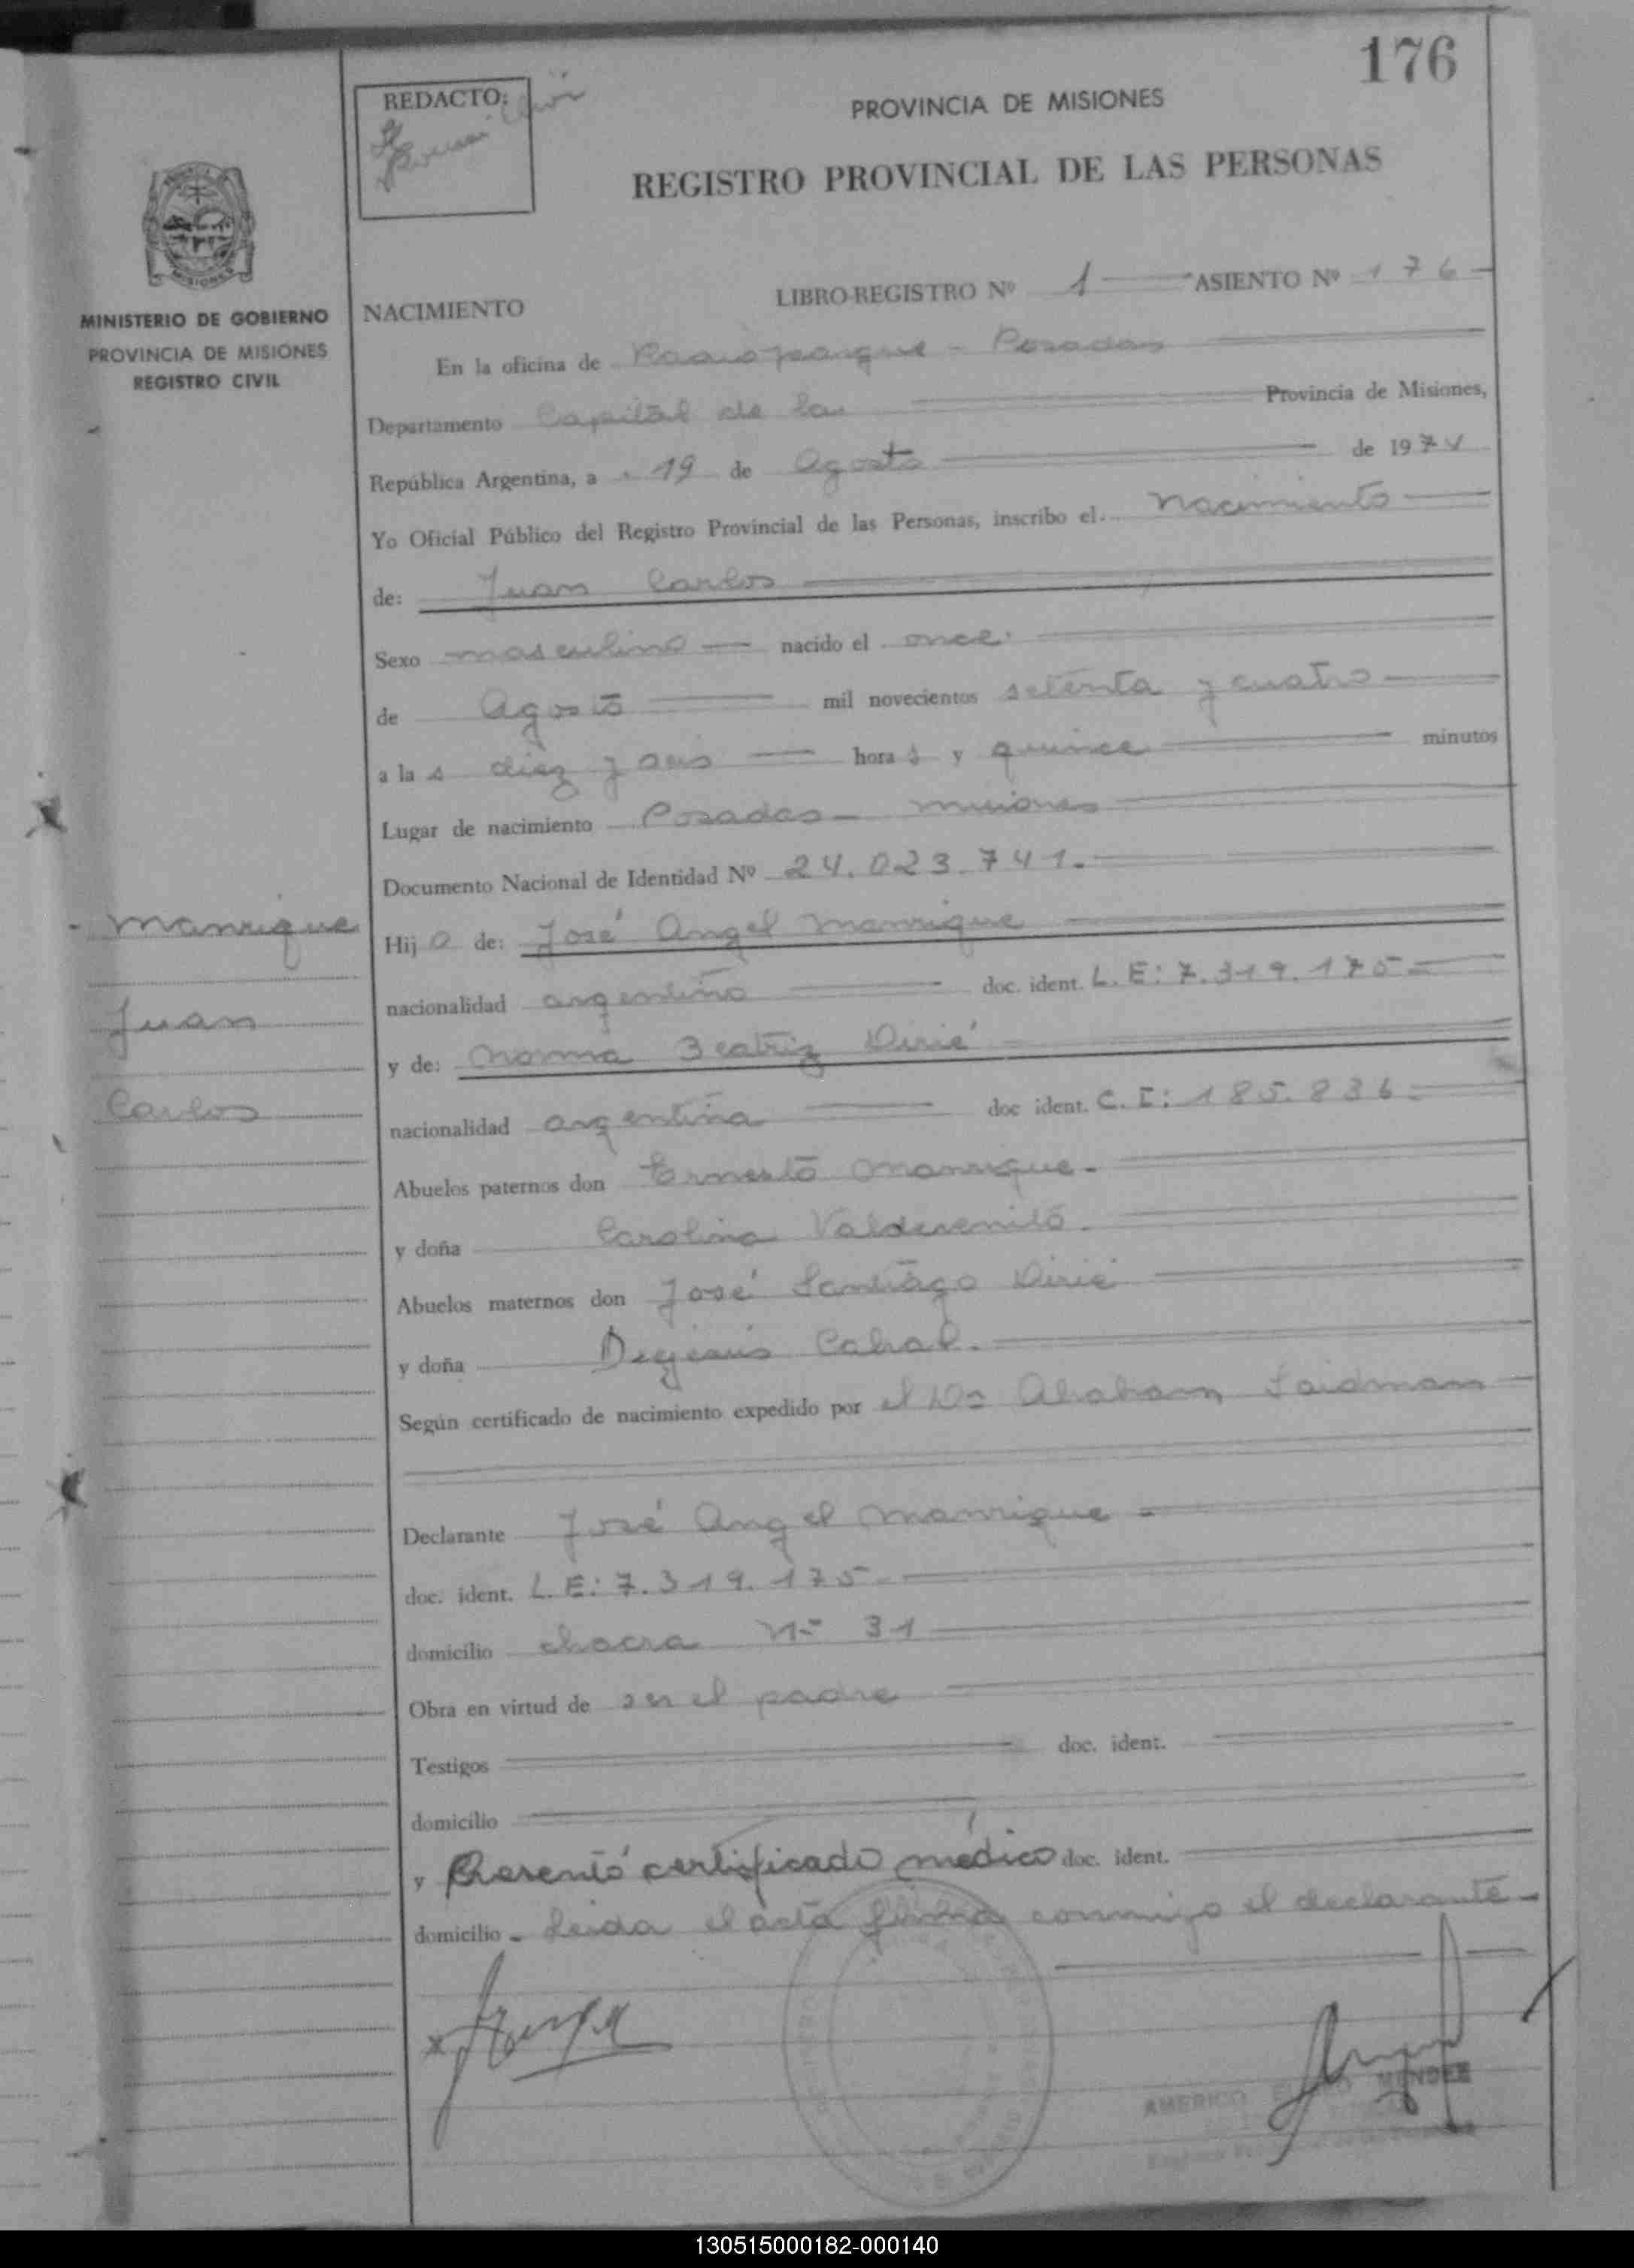 176
REDACTO:
PROVINCIA DE MISIONES
REGISTRO PROVINCIAL DE LAS PERSONAS
MISIONES
MINISTERIO DE GOBIERNO
PROVINCIA DE MISIONES
REGISTRO CIVIL
NACIMIENTO
LIBRO-REGISTRO Nº 1 ASIENTO Nº 176
En la oficina de - Posadas
Departamento Capital de la Provincia de Misiones,
República Argentina, a 19 de Agosto de 1974
Yo Oficial Público del Registro Provincial de las Personas, inscribo el Nacimiento
de: Juan Carlos
Sexo masculino nacido el once
de Agosto mil novecientos setenta y cuatro
a la s diez y seis hora s y quince minutos
Lugar de nacimiento Posadas - Misiones
Documento Nacional de Identidad Nº 24.023.741.
Manrique
Juan
Carlos
Hij o de: José Angel Manrique
nacionalidad argentino doc. ident. L.E: 7.319.175
y de: Norma Beatriz Dirié
nacionalidad argentina doc ident. C.I: 185.836
Abuelos paternos don Ernesto Manrique
y doña Carolina
Abuelos maternos don José Santiago Dirié
y doña Cabral.
Según certificado de nacimiento expedido por el Dr Abraham Saidman
Declarante José Angel Manrique
doc. ident. L.E: 7.319.175
domicilio chacra Nº 31
Obra en virtud de ser el padre
Testigos doc. ident.
domicilio
y Presentó certificado médico doc. ident.
domicilio - Leida el acta firma conmigo el declarante
AMERICO MENDEZ
130515000182-000140